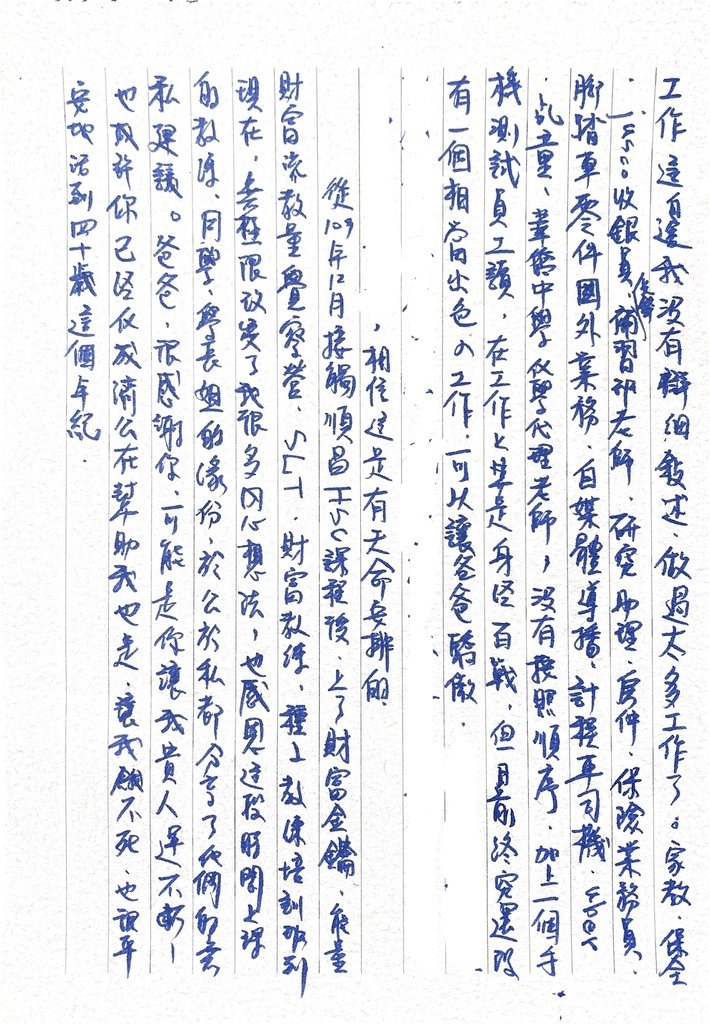 工作這月還我沒有詳細敘述，做過太多工作了。家教、保全
、收銀員、補習班老師、研究助理、房仲、保險業務員、
腳踏車零件國外業務、自媒體導播、計程車司機、
、華僑中學 代理老師，沒有按照順序，加上一個手
機測試員工讀，在工作上算是身經百戰，但目前終究還沒
有一個相當出色的工作，可以讓爸爸驕傲。
，相信這是有天命安排的
從109年12月接觸順昌 課程後，上了財富金鑰、能量
財富流教量覺察營、 財富教練、種子教練培訓班到
現在，去極限改變了我很多內心想法，也感恩這段時間上課
的教練、同學、學長姐的緣份，於公於私都分享了他們的意
私建議。爸爸，很感謝你，可能是你讓我貴人運不斷，
也或許你已經 成濟公在幫助我也是，讓我餓不死，也讓平
安地活到四十歲這個年紀。